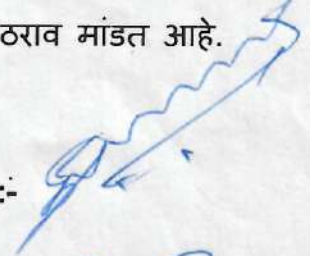 ठराव मांडत आहे.
:-